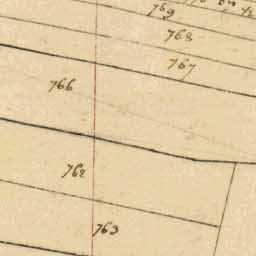 769
768
767
766
762
763